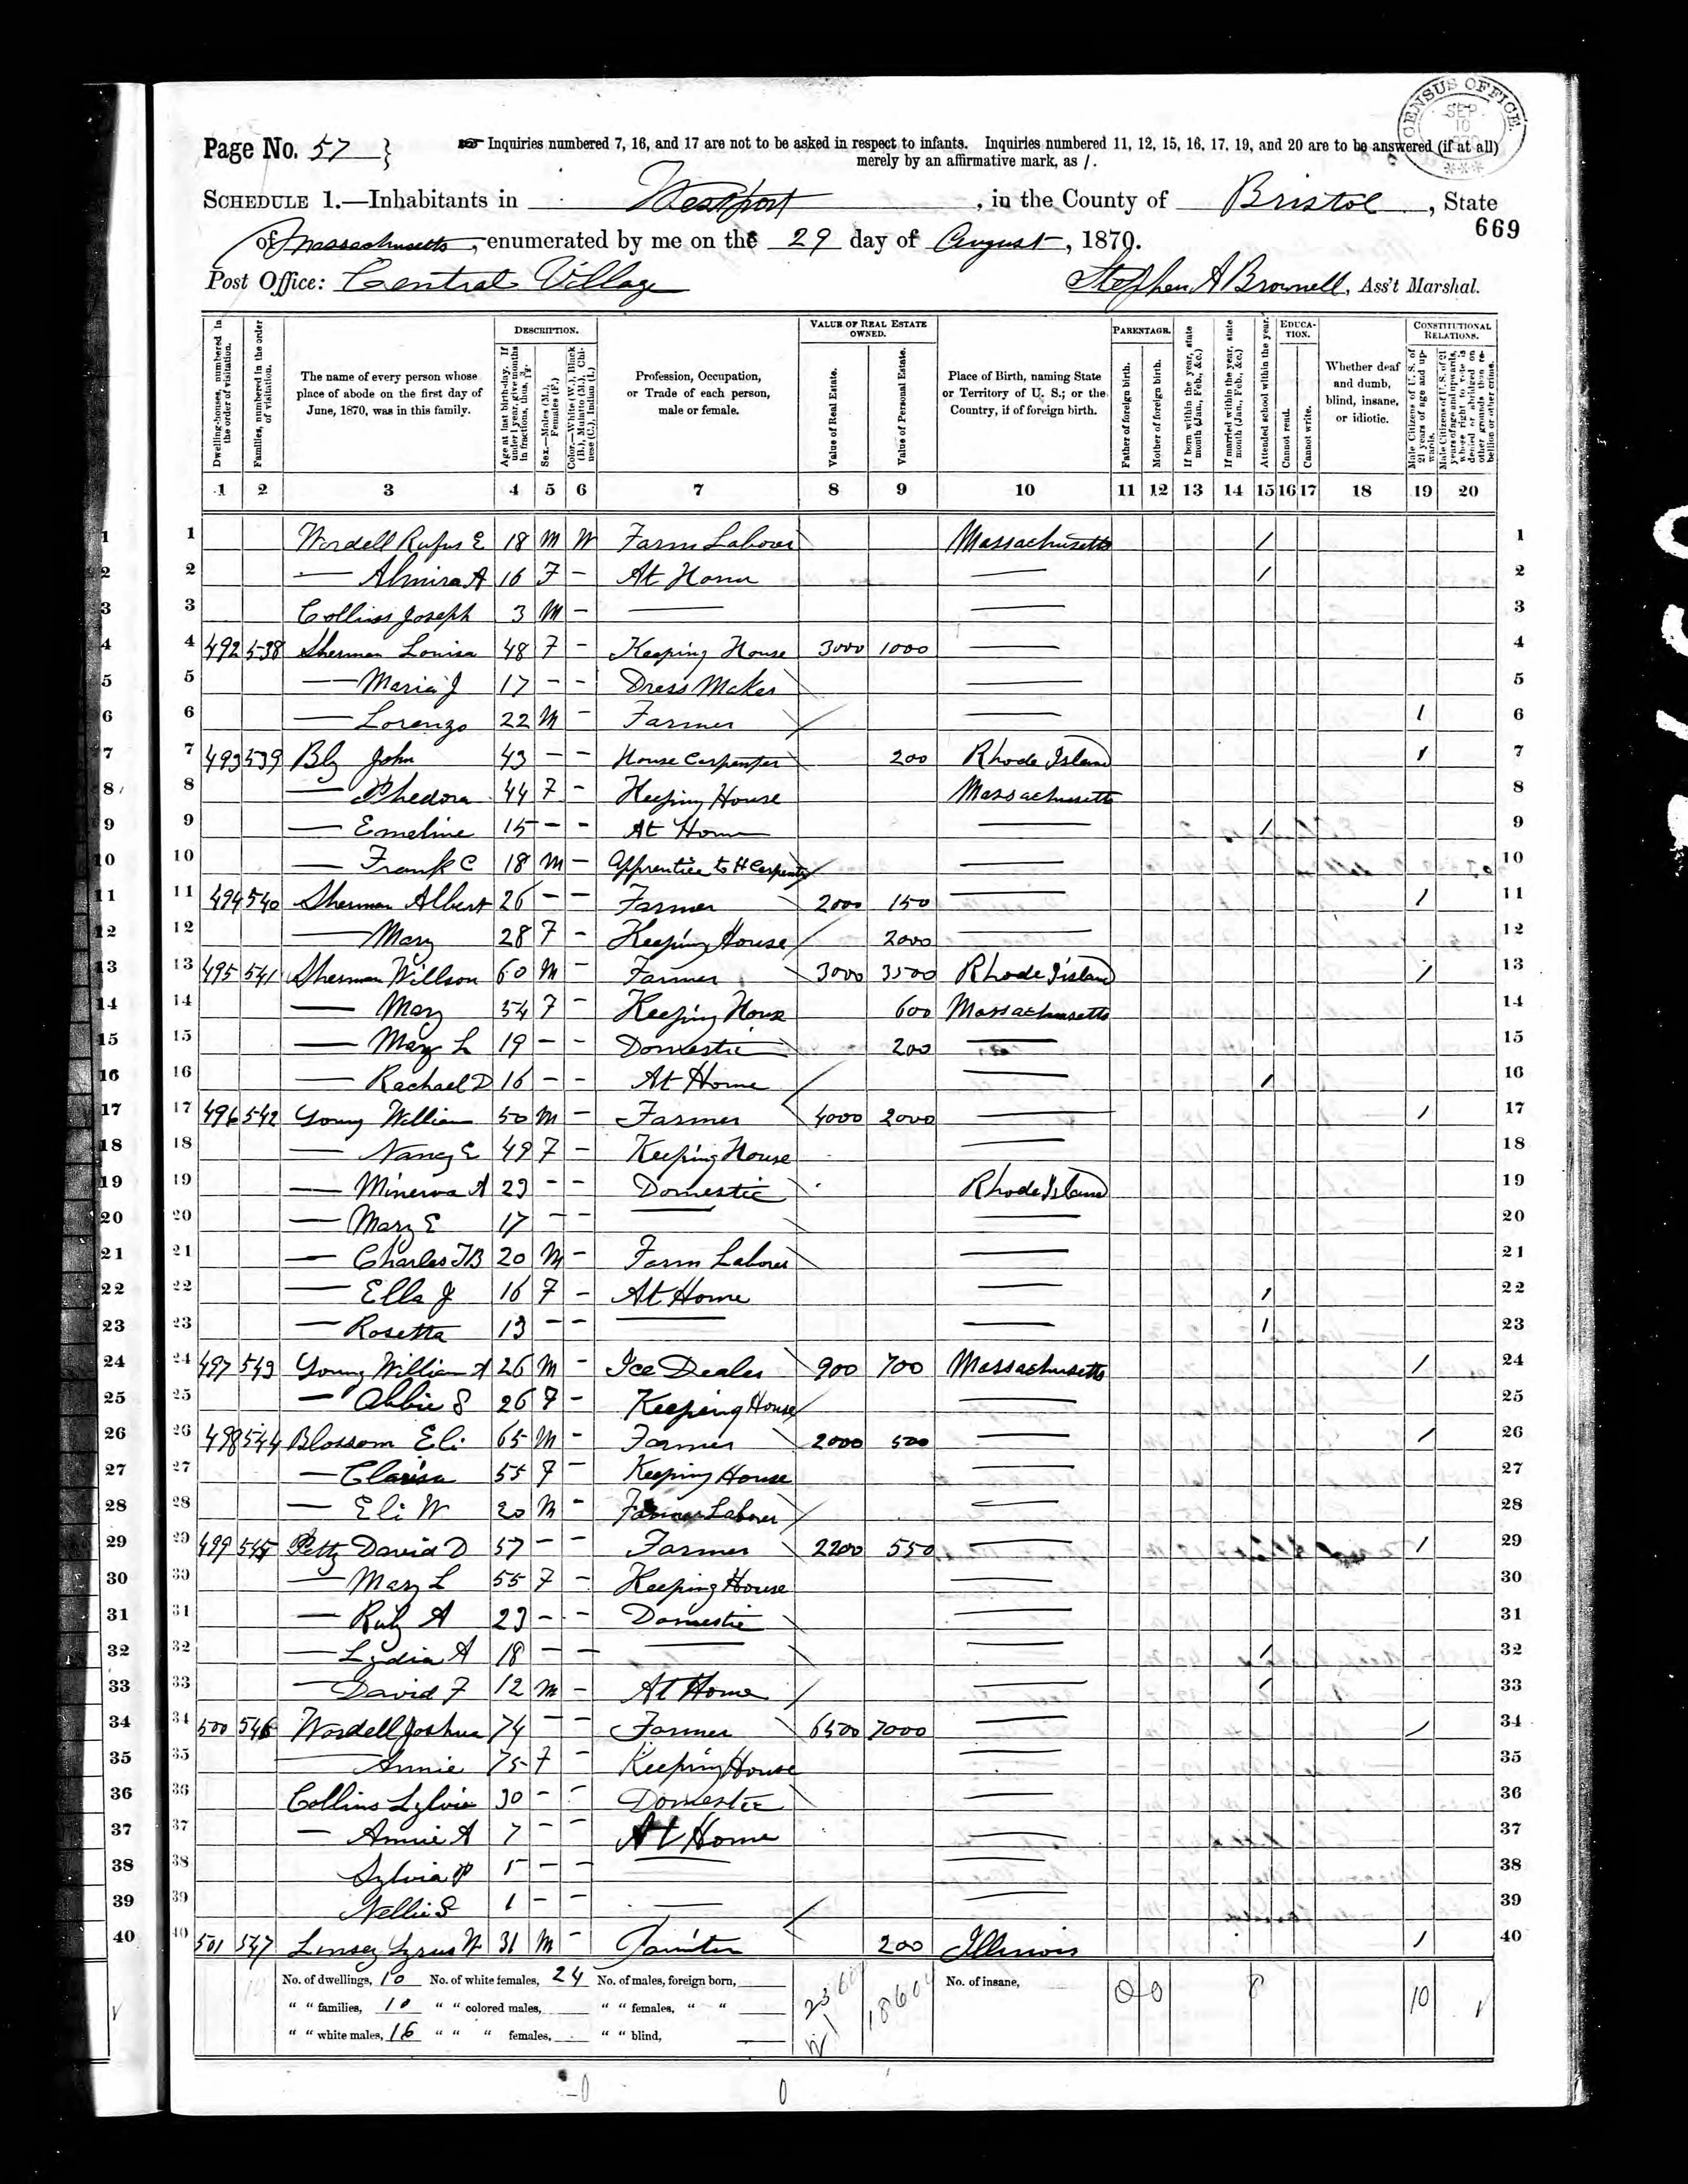 CENSUS OFFICE SEP 10 1870
Page No. 57 } Inquiries numbered 7, 16, and 17 are not to be asked in respect to infants. Inquiries numbered 11, 12, 15, 16, 17, 19, and 20 are to be answered (if at all)
merely by an affirmative mark, as /.
SCHEDULE 1.—Inhabitants in Westport, in the County of Bristol, State
669
of Massachusetts, enumerated by me on the 29 day of August, 1870.
Post Office: Central Village Stephen A Brownell, Ass't Marshal.
Dwelling-houses, numbered in the order of visitation.
Families, numbered in the order of visitation.
The name of every person whose place of abode on the first day of June, 1870, was in this family.
DESCRIPTION.
Age at last birth-day. If under 1 year, give months in fractions, thus, 3/12.
Sex.—Males (M.), Females (F.)
Color.—White (W.), Black (B.), Mulatto (M.), Chinese (C.), Indian (I.)
Profession, Occupation, or Trade of each person, male or female.
VALUE OF REAL ESTATE OWNED.
Value of Real Estate.
Value of Personal Estate.
Place of Birth, naming State or Territory of U. S.; or the Country, if of foreign birth.
PARENTAGE.
Father of foreign birth.
Mother of foreign birth.
If born within the year, state month (Jan., Feb., &c.)
If married within the year, state month (Jan., Feb., &c.)
Attended school within the year.
EDUCATION.
Cannot read.
Cannot write.
Whether deaf and dumb, blind, insane, or idiotic.
CONSTITUTIONAL RELATIONS.
Male Citizens of U. S. of 21 years of age and upwards.
Male Citizens of U. S. of 21 years of age and upwards, whose right to vote is denied or abridged on other grounds than rebellion or other crime.
1 2 3 4 5 6 7 8 9 10 11 12 13 14 15 16 17 18 19 20
1 Wordell Rufus E 18 M W Farm Laborer Massachusetts / 1
2 — Almira A 16 F — At Home — / 2
3 Collins Joseph 3 M — — — 3
4 492 538 Sherman Louisa 48 F — Keeping House 3000 1000 — 4
5 — Maria J 17 — — Dress Maker — 5
6 — Lorenzo 22 M — Farmer — 1 6
7 493 539 Bly John 43 — — House Carpenter 200 Rhode Island 1 7
8 — Phedora 44 F — Keeping House Massachusetts 8
9 — Emeline 15 — — At Home — / 9
10 — Frank C 18 M — Apprentice to H Carpenter — 10
11 494 540 Sherman Albert 26 — — Farmer 2000 150 — / 11
12 — Mary 28 F — Keeping House 2000 — 12
13 495 541 Sherman Willson 60 M — Farmer 3000 3500 Rhode Island / 13
14 — Mary 54 F — Keeping House 600 Massachusetts 14
15 — Mary L 19 — — Domestic 200 — 15
16 — Rachael D 16 — — At Home — / 16
17 496 542 Young William 50 M — Farmer 4000 2000 — / 17
18 — Nancy E 49 F — Keeping House — 18
19 — Minerva A 23 — — Domestic Rhode Island 19
20 — Mary E 17 — — — — 20
21 — Charles TB 20 M — Farm Laborer — 21
22 — Ella J 16 F — At Home — / 22
23 — Rosetta 13 — — — — 1 23
24 497 543 Young William A 26 M — Ice Dealer 900 700 Massachusetts / 24
25 — Abbie S 26 F — Keeping House — 25
26 498 544 Blossom Eli 65 M — Farmer 2000 500 — / 26
27 — Clarisa 55 F — Keeping House — 27
28 — Eli W 20 M — Farm Laborer — 28
29 499 545 Petty David D 57 — — Farmer 2200 550 — 1 29
30 — Mary L 55 F — Keeping House — 30
31 — Ruby A 23 — — Domestic — 31
32 — Lydia A 18 — — — — / 32
33 — David F 12 M — At Home — / 33
34 500 546 Wordell Joshua 74 — — Farmer 6500 7000 — / 34
35 — Annie 75 F — Keeping House — 35
36 Collins Sylvia 30 — — Domestic — 36
37 — Annie A 7 — — At Home — 37
38 Sylvia P 5 — — — — 38
39 Nellie S 1 — — — — 39
40 501 547 Linsey Cyrus W 31 M — Painter 200 Illinois 1 40
No. of dwellings, 10 No. of white females, 24 No. of males, foreign born, No. of insane,
" " families, 10 " " colored males, " " females, " "
" " white males, 16 " " " females, " " blind,
0 0 8 10